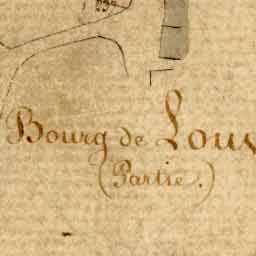 Bourg de Louv
(Partie.)